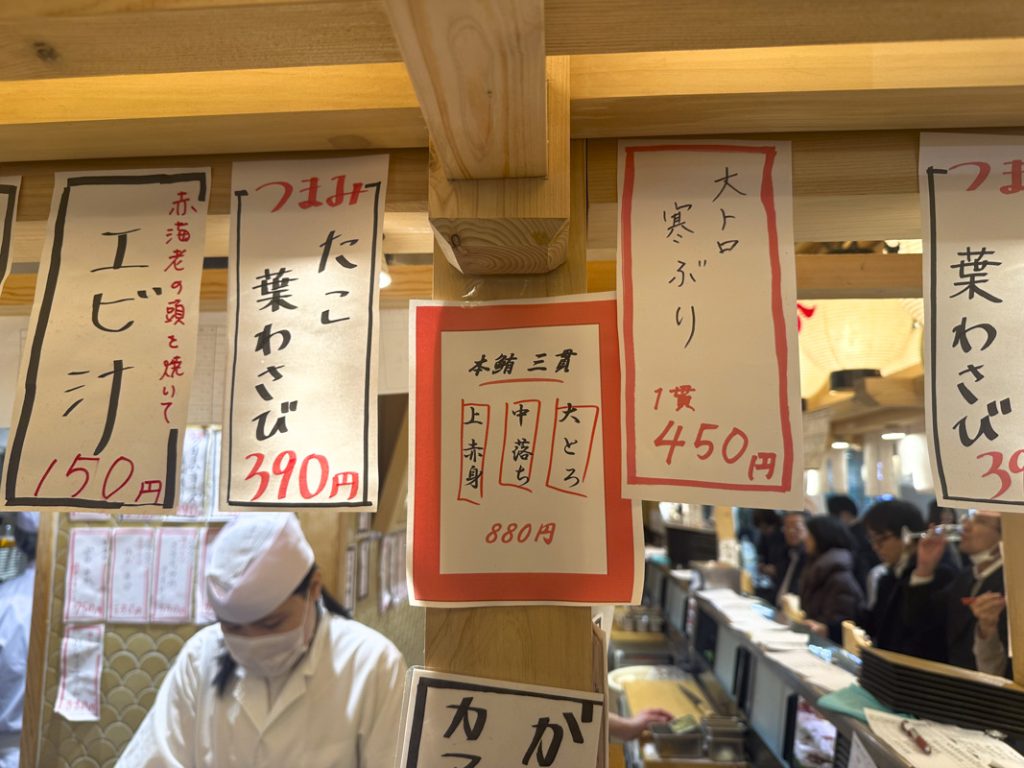 赤海老の頭を焼いて
エビ汁
150円
つまみ
たこ
葉わさび
390円
本鮪 三貫
大とろ
中落ち
上赤身
880円
大トロ
寒ぶり
1貫
450円
つま
葉わさび
39
が
カマ